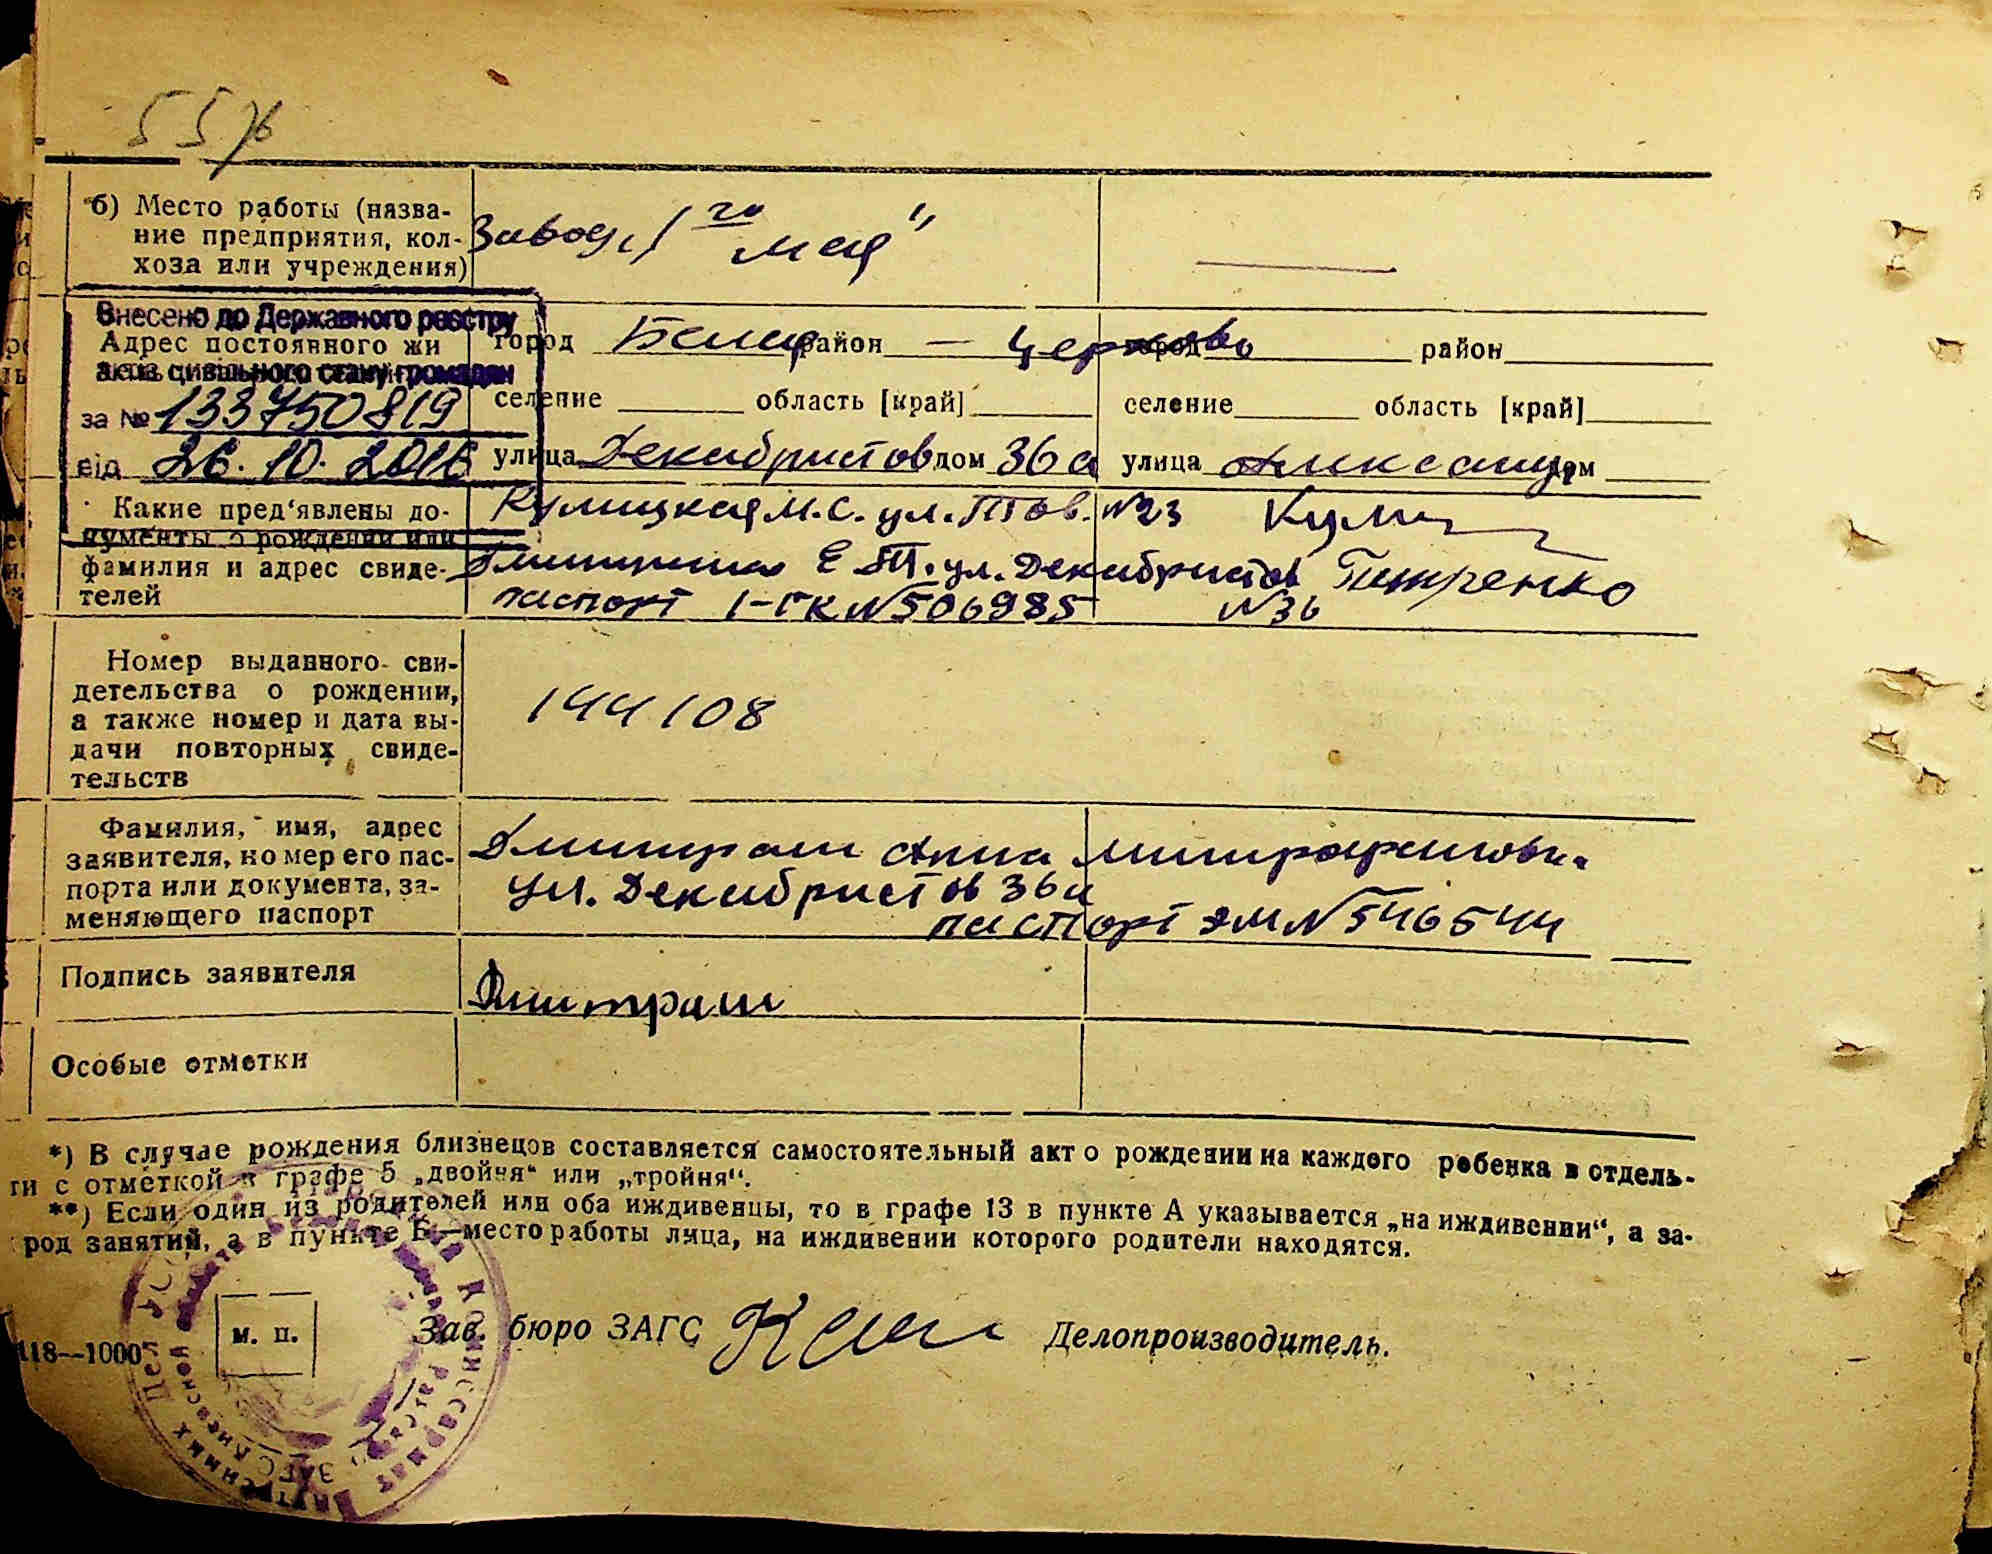 557б
б) Место работы (назва-
ние предприятия, кол-
хоза или учреждения)
Завод „1го мая"
Внесено до Державного реєстру
Адрес постоянного жи
актів цивільного стану громадян
за № 133750819
від 26.10.2016
город Белая район — Церковь город район
селение область [край] селение область [край]
улица Декабристов дом 36а улица дом
Какие пред'явлены до-
кументы о рождении или
фамилия и адрес свиде-
телей
Кулицкая М.С. ул. Тов. №23
Е.Т. ул. Декабристов Петренко
паспорт 1-ГК №506985 №36
Номер выданного сви-
детельства о рождении,
а также номер и дата вы-
дачи повторных свиде-
тельств
144108
Фамилия, имя, адрес
заявителя, номер его пас-
порта или документа, за-
меняющего паспорт
Дмитраш Анна Митрофановна
ул. Декабристов 36а
паспорт ЭМ №546544
Подпись заявителя
Дмитраш
Особые отметки
*) В случае рождения близнецов составляется самостоятельный акт о рождении на каждого ребенка в отдель-
ти с отметкой в графе 5 „двойня“ или „тройня“.
**) Если один из родителей или оба иждивенцы, то в графе 13 в пункте А указывается „на иждивении“, а за-
род занятий, а в пункте Б—место работы лица, на иждивении которого родители находятся.
м. п.
Зав. бюро ЗАГС Делопроизводитель.
118—1000
Комиссариат Внутренних Дел УССР
ЗАГС Киевской